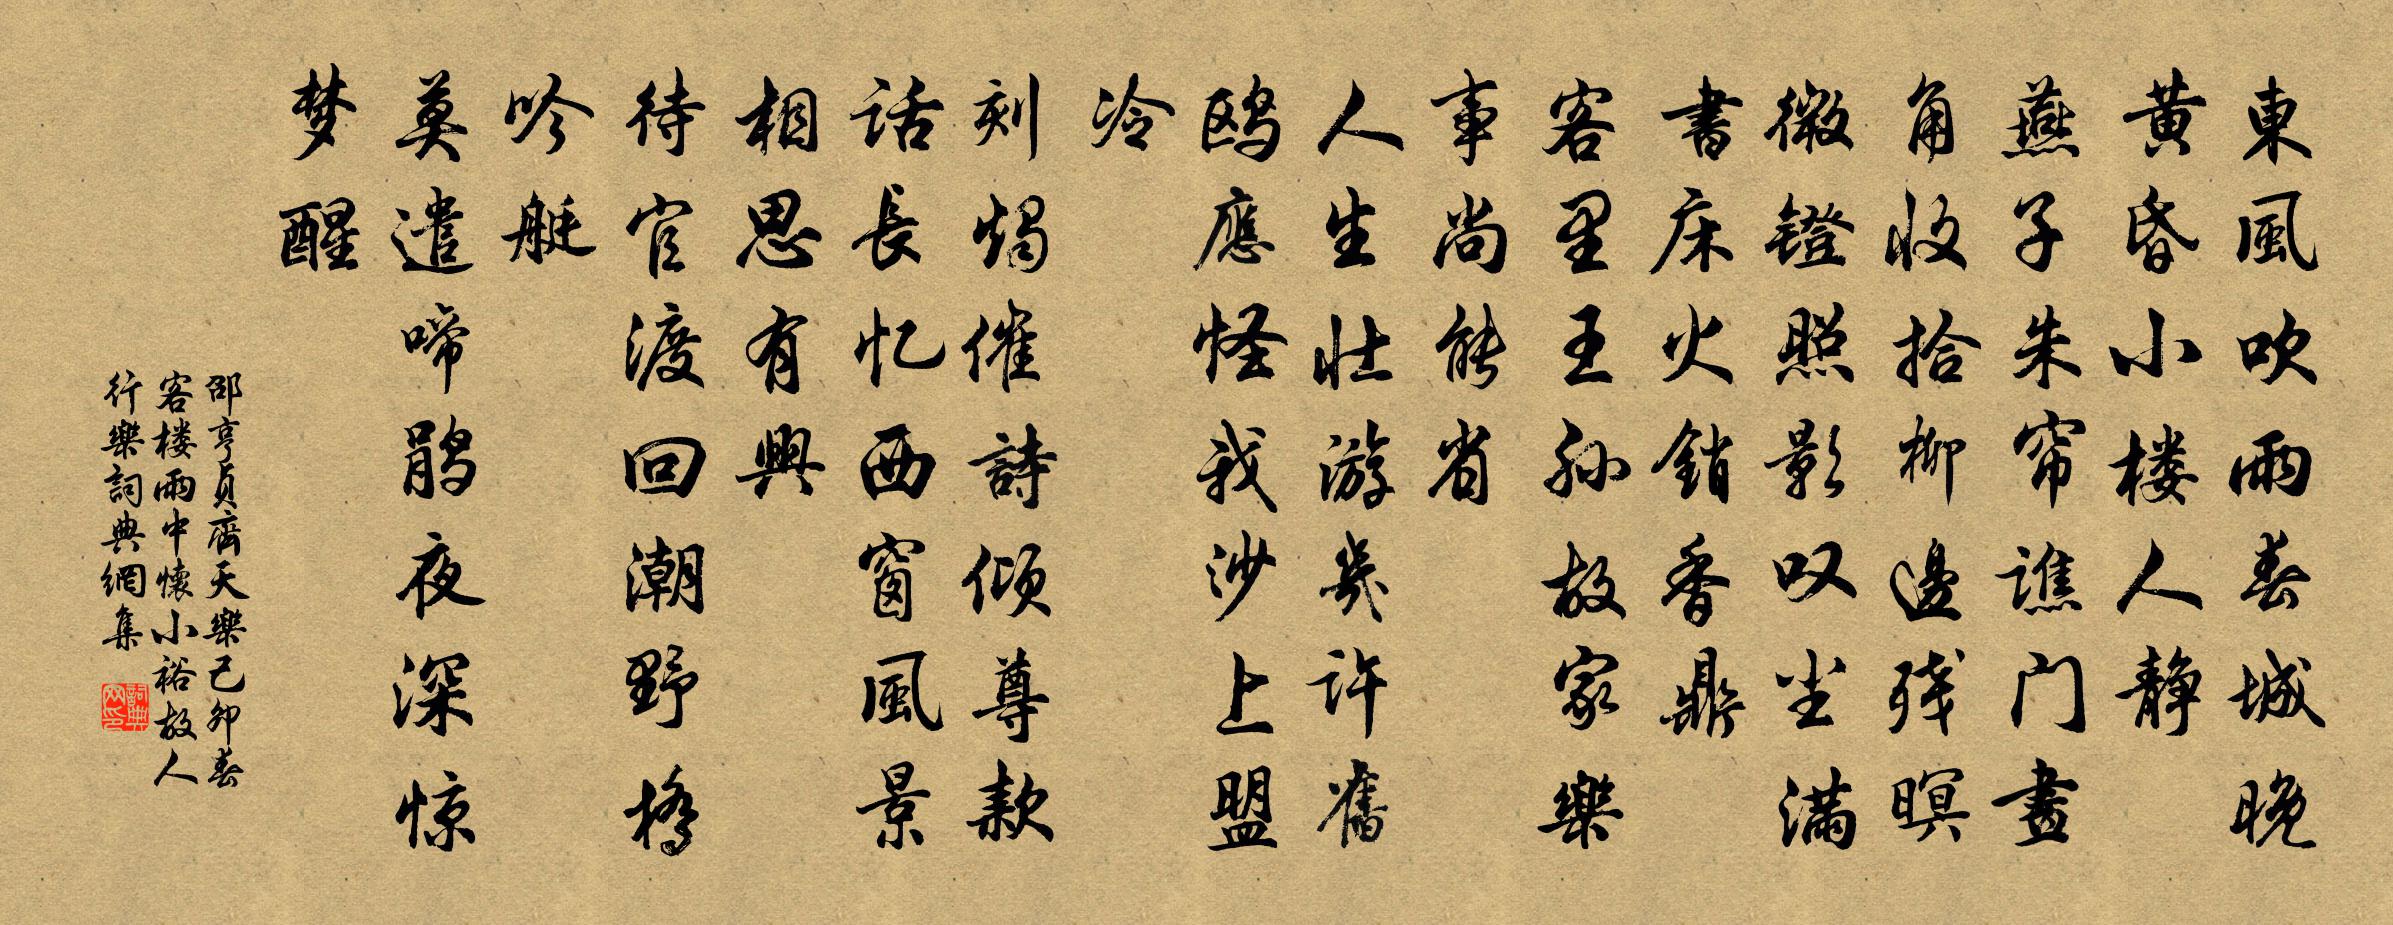 東風吹雨春城晚
黃昏小楼人静
燕子朱帘譙门畫
角收拾柳邊残暝
微鐙照影叹尘满
書床火銷香鼎
客里王孙故家樂
事尚能省
人生壮游几许舊
鸥應怪我沙上盟
冷
刻燭催詩倾尊款
話長忆西窗風景
相思有興
待官渡回潮野橋
吟艇
莫遣啼鹃夜深惊
梦醒
邵亨貞齊天樂己卯春
客楼雨中懷小裕故人
行樂詞典網集
詞典网印